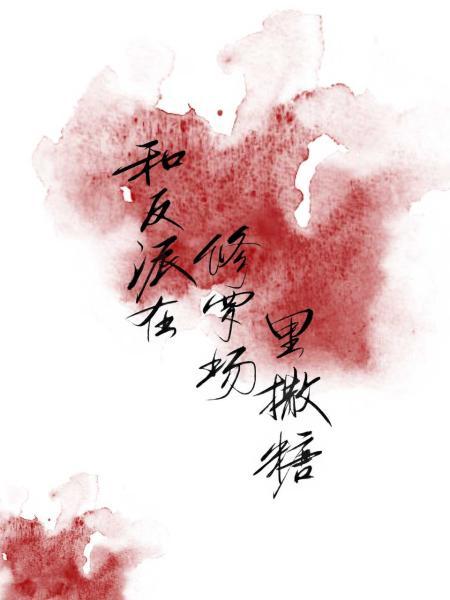 和反派在
修罗场
里撒糖